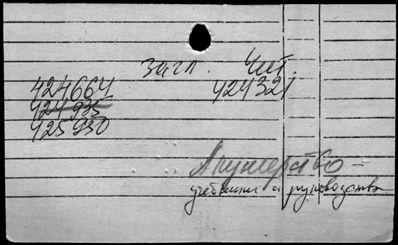 Загл. Чит.
424664 424321
424935
425930
Акушерство —
учебники и руководства